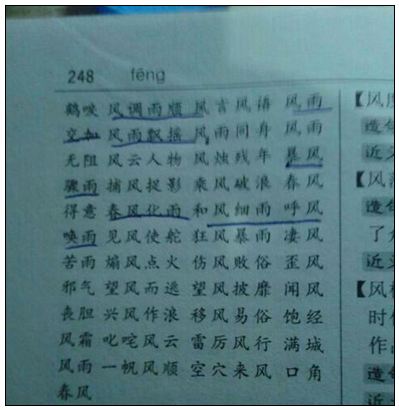 248 fēng
鹤唳 风调雨顺 风言风语 风雨
交加 风雨飘摇 风雨同舟 风雨
无阻 风云人物 风烛残年 暴风
骤雨 捕风捉影 乘风破浪 春风
得意 春风化雨 和风细雨 呼风
唤雨 见风使舵 狂风暴雨 凄风
苦雨 煽风点火 伤风败俗 歪风
邪气 望风而逃 望风披靡 闻风
丧胆 兴风作浪 移风易俗 饱经
风霜 叱咤风云 雷厉风行 满城
风雨 一帆风顺 空穴来风 口角
春风
【风
造句
近义
【风
造句
了
近义
【风
时
作
造句
近义